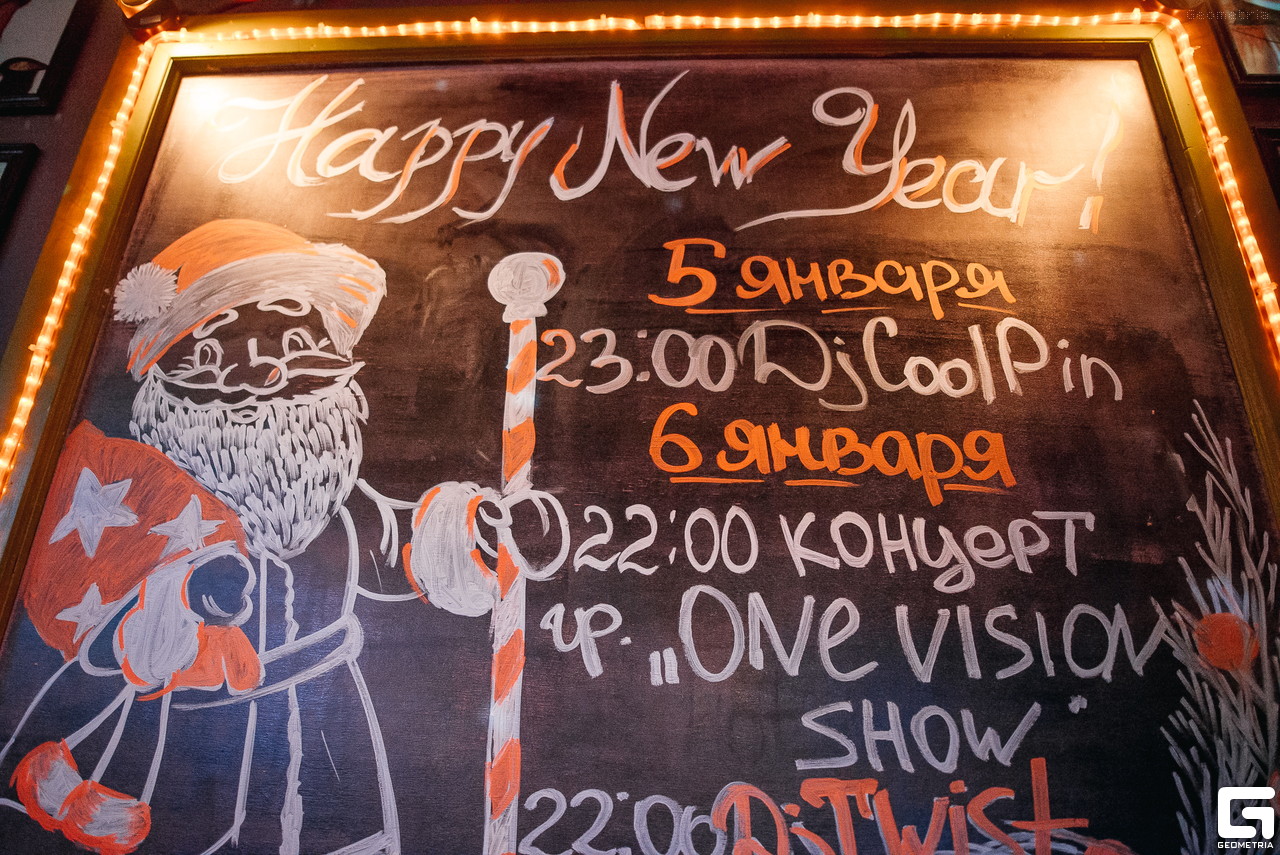 Happy New Year!
5 января
23:00 Dj CoolPin
6 января
22:00 концерт
гр. „ONe VISION
SHOW"
22:00 Dj Twist
GEOMETRIA
Geometria